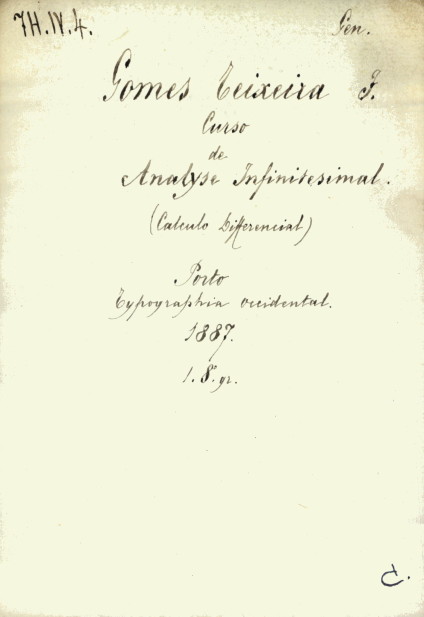 7H.IV.4.
Gen.
Gomes Teixeira F.
Curso
de
Analyse Infinitesimal.
(Calculo Differencial)
Porto
Typographia occidental.
1887.
1. 8º gr.
C.